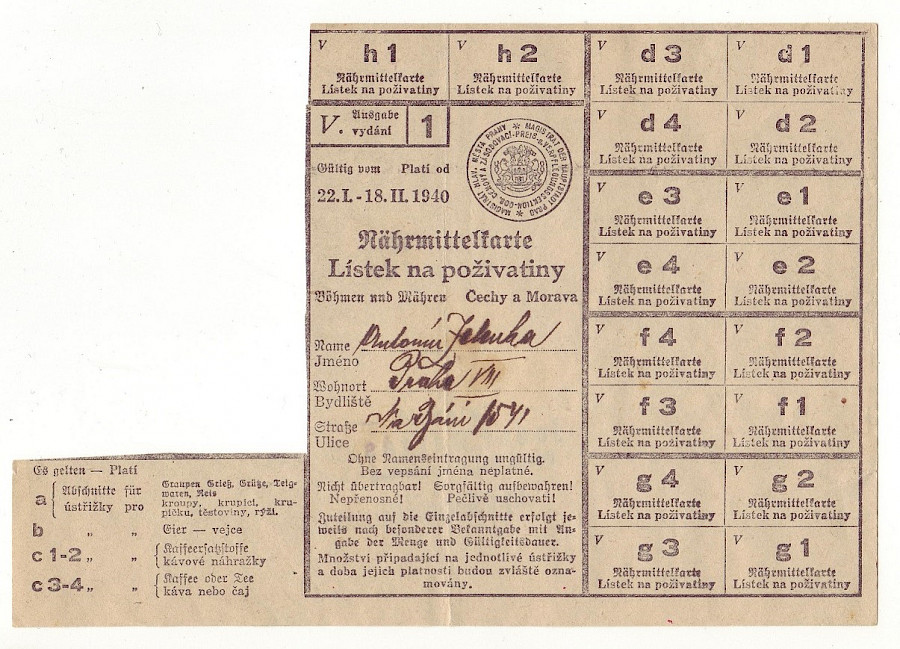 V h1
Nährmittelkarte
Lístek na poživatiny
V h2
Nährmittelkarte
Lístek na poživatiny
V d3
Nährmittelkarte
Lístek na poživatiny
V d1
Nährmittelkarte
Lístek na poživatiny
V. Ausgabe
vydání 1
V d4
Nährmittelkarte
Lístek na poživatiny
V d2
Nährmittelkarte
Lístek na poživatiny
Gültig vom Platí od
22. I. - 18. II. 1940
MAGISTRÁT HLAV. MĚSTA PRAHY * MAGISTRAT DER HAUPTSTADT PRAG *
V e3
Nährmittelkarte
Lístek na poživatiny
V e1
Nährmittelkarte
Lístek na poživatiny
Nährmittelkarte
Lístek na poživatiny
Böhmen und Mähren Čechy a Morava
V e4
Nährmittelkarte
Lístek na poživatiny
V e2
Nährmittelkarte
Lístek na poživatiny
Name Antonín
Jméno
Wohnort Praha VIII
Bydliště
Straße Na
Ulice
V f4
Nährmittelkarte
Lístek na poživatiny
V f2
Nährmittelkarte
Lístek na poživatiny
V f3
Nährmittelkarte
Lístek na poživatiny
V f1
Nährmittelkarte
Lístek na poživatiny
Ohne Namenseintragung ungültig.
Bez vepsání jména neplatné.
Nicht übertragbar! Sorgfältig aufbewahren!
Nepřenosné! Pečlivě uschovati!
Zuteilung auf die Einzelabschnitte erfolgt je-
weils nach besonderer Bekanntgabe mit An-
gabe der Menge und Gültigkeitsdauer.
Množství připadající na jednotlivé ústřižky
a doba jejich platnosti budou zvláště ozna-
movány.
V g4
Nährmittelkarte
Lístek na poživatiny
V g2
Nährmittelkarte
Lístek na poživatiny
V g3
Nährmittelkarte
Lístek na poživatiny
V g1
Nährmittelkarte
Lístek na poživatiny
Es gelten — Platí
a Abschnitte für Graupen Grieß, Grütze, Teig-
waren, Reis
ústřižky pro kroupy, krupici, kru-
pičku, těstoviny, rýži.
b „ „ Eier — vejce
c 1-2 „ „ Kaffeersatzstoffe
kávové náhražky
c 3-4 „ „ Kaffee oder Tee
káva nebo čaj